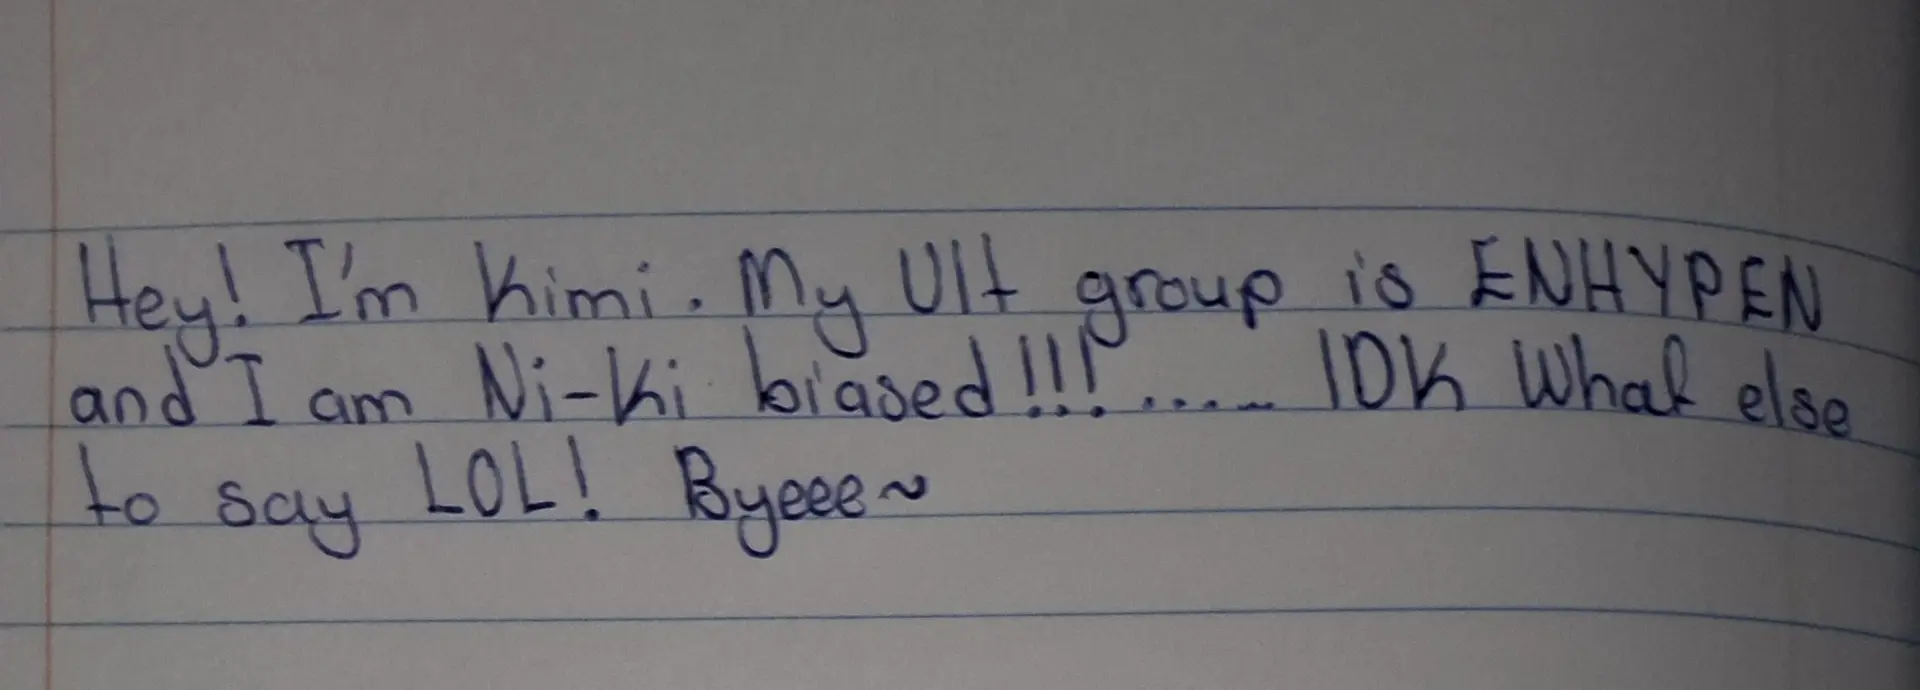 Hey! I'm Kimi. My Ult group is ENHYPEN
and I am Ni-Ki biased!!!...... IDK What else
to say LOL! Byeee~